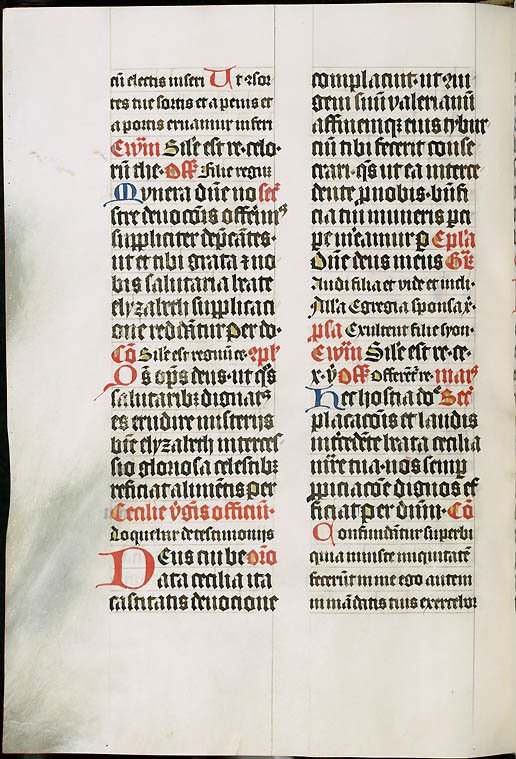 cū electis inseri Ut ⁊ sor
tes tue fortis et a penis et
a portis eruamur inferi
Ewm̄ Sil'e est re celo
rū the Off Filie regū
Munera dn̄e nostre
devocōis offerim⁹
suppliciter dep̄cātes
ut et tibi grata ⁊ no
bis salutaria beate
elyzabeth supplicaci
one reddāntur per do
Cō Sil'e est regnū ce
Os op̄s deus ut q̄s
salutarib; dignat⁹
es erudire misterijs
bt̄e elyzabeth interces
sio gloriosa celestib;
reficiat alimētis per
Cecilie v̄gīs officiū
Loquebar de testimonijs
Deus cui be orō
ata cecilia ita
castitatis devocione
complacuit ut 
gem suū valerianū
affinemq; eius tybur
ciū tibi fecerit conse
crari q̄s ut ea interce
dente p nobis
cia tui muneris
p Epl'a
Dn̄e deus meus Gr̄
Audi filia et vide et incli
All'a Egregia sponsa x
psa Exultent filie syon
Ewm̄ Sil'e est re ce
x v̄ Off Offerēt re
Hec hostia do Sec̄
placacōis et laudis
int̄cedēte beata cecilia
m̄re tua nos semp
ppiciacōe dignos ef
ficiat per dn̄m Cō
Confundātur superbi
quia iniuste iniquitatē
fecerūt in me ego autem
in mādatis tuis exercebor